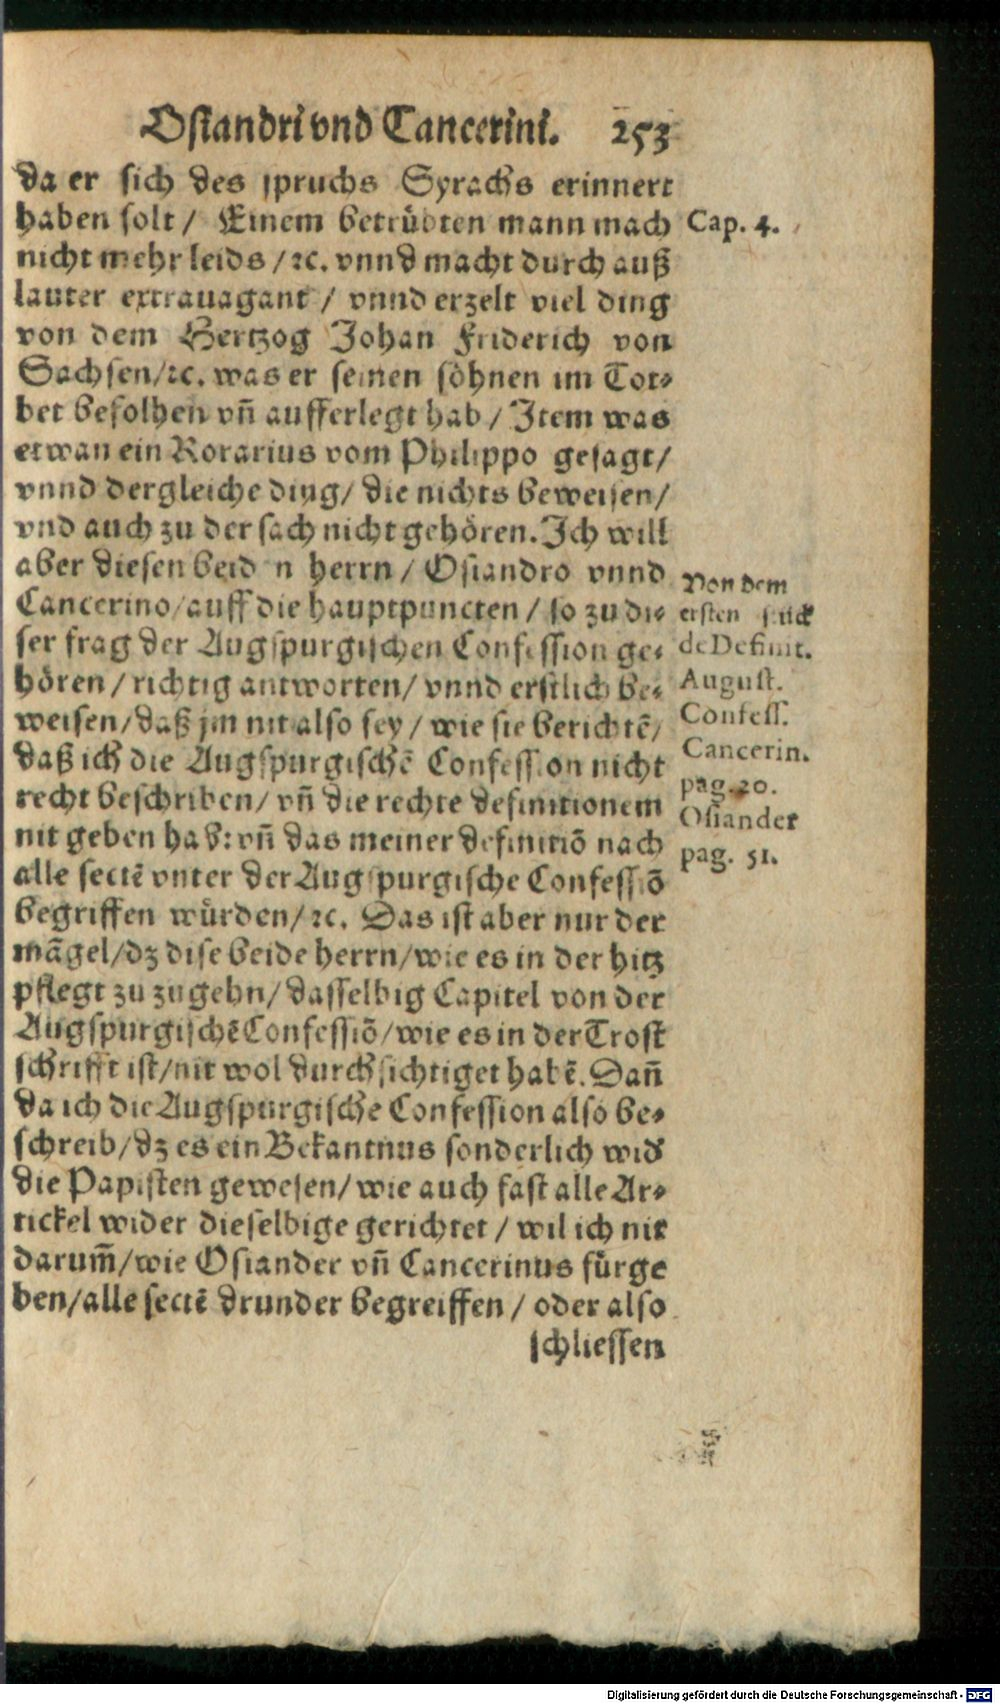 Osiandri vnd Cancerini. 253
da er sich des spruchs Syrachs erinnert
haben solt / Einem betrübten mann mach
Cap. 4.
nicht mehr leids / ꝛc. vnnd macht durch auß
lauter extrauagant / vnnd erzelt viel ding
von dem Hertzog Johan Friderich von
Sachsen/ꝛc. was er seinen söhnen im Tot⸗
bet befolhen vñ aufferlegt hab / Item was
etwan ein Rorarius vom Philippo gesagt/
vnnd dergleiche ding/ die nichts beweisen/
vnd auch zu der sach nicht gehören. Ich will
aber diesen beiden herrn / Osiandro vnnd
Cancerino/auff die hauptpuncten / so zu die⸗
ser frag der Augspurgischen Confession ge⸗
hören / richtig antworten/ vnnd erstlich be⸗
weisen/daß jm nit also sey / wie sie berichtẽ/
daß ich die Augspurgischẽ Confession nicht
recht beschriben/ vñ die rechte definitionem
nit geben hab: vñ das meiner definitiõ nach
alle sectẽ vnter der Augspurgische Confessiõ
begriffen würden/ꝛc. Das ist aber nur der
mãgel/dz dise beide herrn/wie es in der hitz
pflegt zu zugehn/ dasselbig Capitel von der
Augspurgischẽ Confessiõ/wie es in der Trost
schrifft ist/nit wol durchsichtiget habẽ. Dañ
da ich die Augspurgische Confession also be⸗
schreib/dz es ein Bekantnus sonderlich wid
die Papisten gewesen/ wie auch fast alle Ar⸗
tickel wider dieselbige gerichtet / wil ich nit
darum̃/wie Osiander vñ Cancerinus fürge
ben/alle sectẽ drunder begreiffen / oder also
schliessen
Von dem
ersten stück
de Definit.
August.
Confess.
Cancerin.
pag. 20.
Osiander
pag. 51.
Digitalisierung gefördert durch die Deutsche Forschungsgemeinschaft - DFG